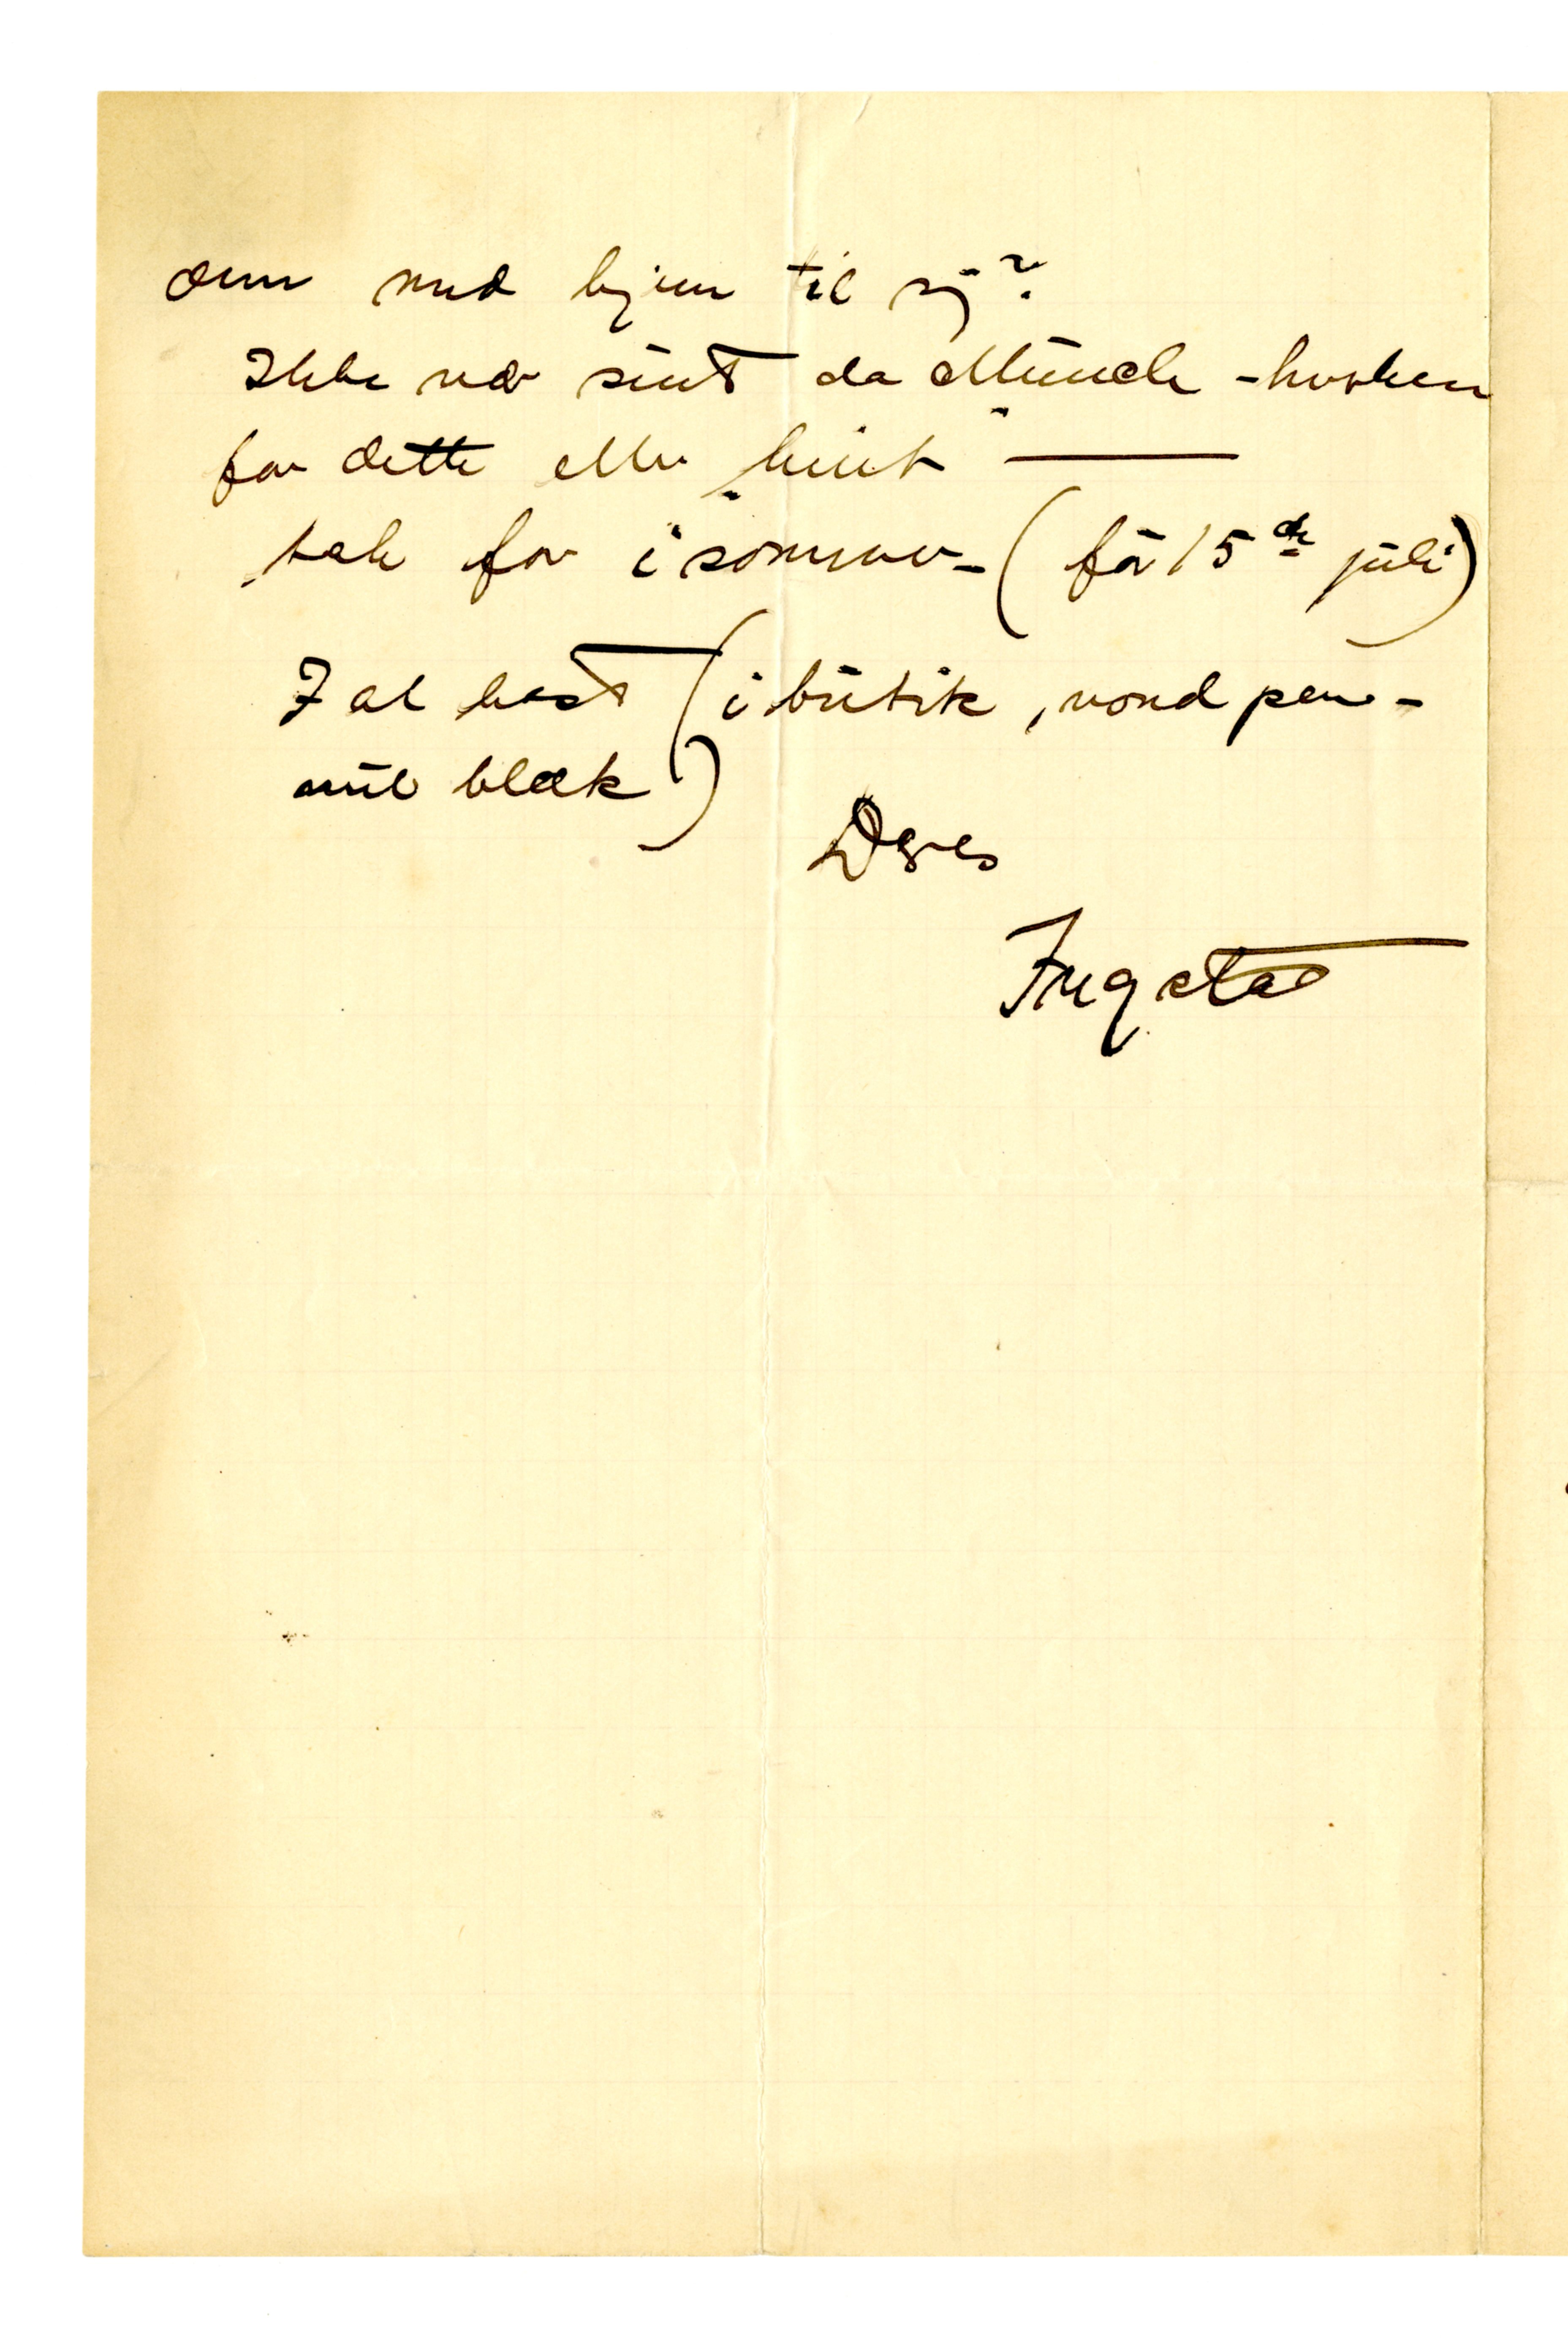 dem med hjem til sig?
Ikke vær sint da Munch – hverken
for dette eller hint ——
tak for i sommer – (før 15de juli)
I al hast (i butik, vond pen –
mit blæk)
Deres